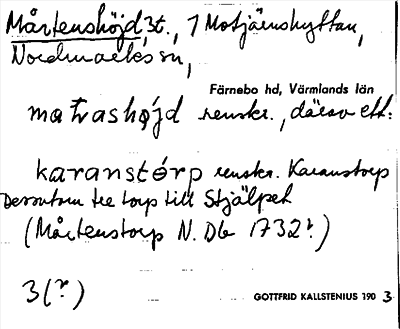 Mårtenshöjd, 3t., 1 Motjärnshyttan,
Nordmarks sn,
Färnebo hd, Värmlands län
matrashøjd renskr., därav ett:
karanstórp renskr. Karanstorp
Dessutom tre torp till Stjälpet
(Mårtenstorp N. Db 1732?)
3(?)
GOTTFRID KALLSTENIUS 1903